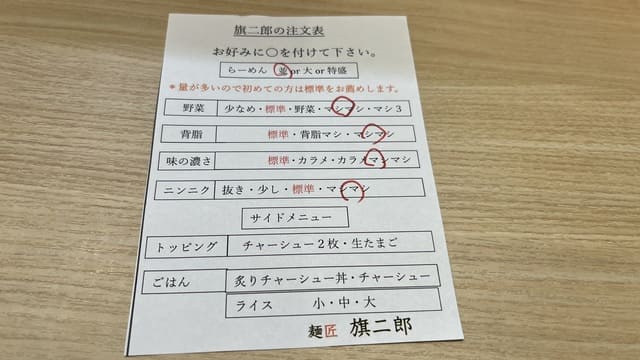 旗二郎の注文表
お好みに〇を付けて下さい。
らーめん 並 or 大 or 特盛
*量が多いので初めての方は標準をお薦めします。
野菜 少なめ・標準・野菜・マシマシ・マシ3
背脂 標準・背脂マシ・マシマシ
味の濃さ 標準・カラメ・カラメマシマシ
ニンニク 抜き・少し・標準・マシマシ
サイドメニュー
トッピング チャーシュー2枚・生たまご
ごはん 炙りチャーシュー丼・チャーシュー
ライス 小・中・大
麺匠 旗二郎